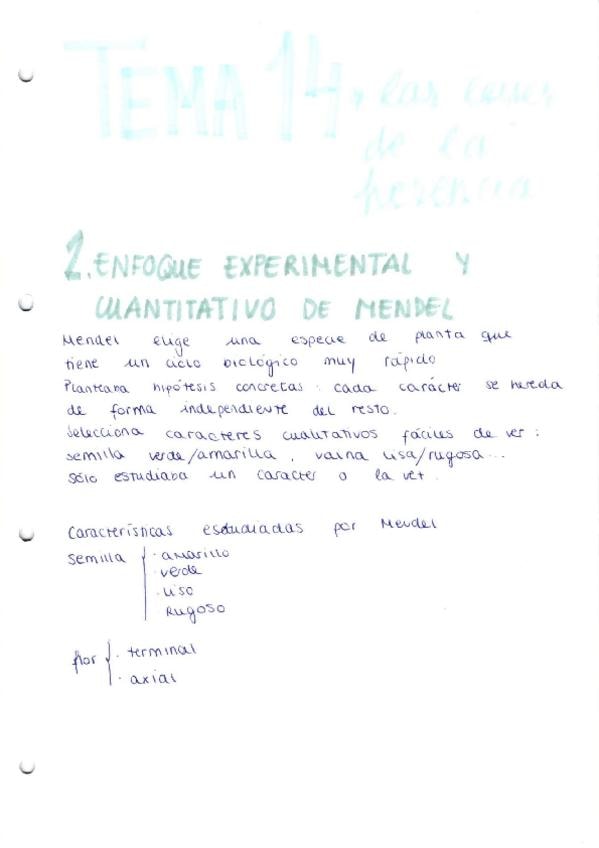 TEMA 14, las leyes
de la
herencia
2. ENFOQUE EXPERIMENTAL Y
CUANTITATIVO DE MENDEL
Mendel elige una especie de planta que
tiene un ciclo biológico muy rápido
Planteaba hipótesis concretas: cada carácter se hereda
de forma independiente del resto.
Selecciona caracteres cualitativos fáciles de ver:
semilla verde/amarilla, vaina lisa/rugosa...
sólo estudiaba un caracter a la vez.
Características estudiadas por Mendel
semilla { · amarillo
· verde
· liso
Rugoso
flor { · terminal
· axial